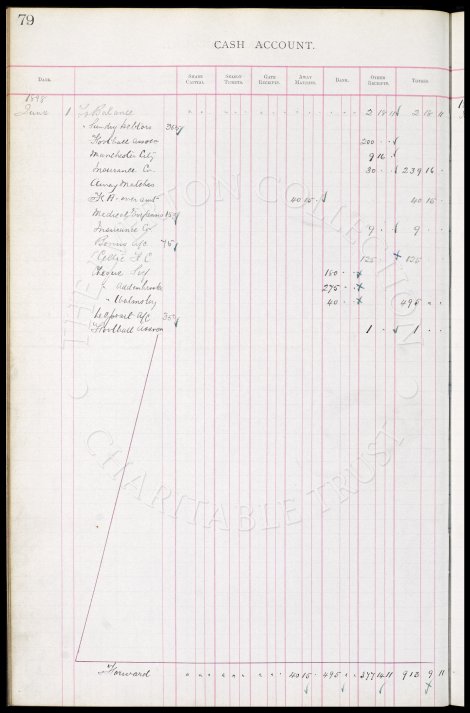 79
CASH ACCOUNT.
DATE. SHARE CAPITAL. SEASON TICKETS. GATE RECEIPTS. AWAY MATCHES. BANK. OTHER RECEIPTS. TOTALS.
1898
June 1 To Balance 2 18 11 2 18 11
" Sundry Debtors
Football Assocn 200
Manchester City 9 16
Insurance Co. 30 239 16
Away Matches
F.A. over amt 40 15 40 15
Medical Expenses
Insurance Co 9 9
Bonus a/c
Celtic F.C. 125 125
Cheque Self 180
" Addenbrooke 275
" Walmsley 40 495
Deposit a/c
Football Assocn 1 1
Forward 40 15 495 377 14 11 913 9 11
THE HUTTON COLLECTION
CHARITABLE TRUST